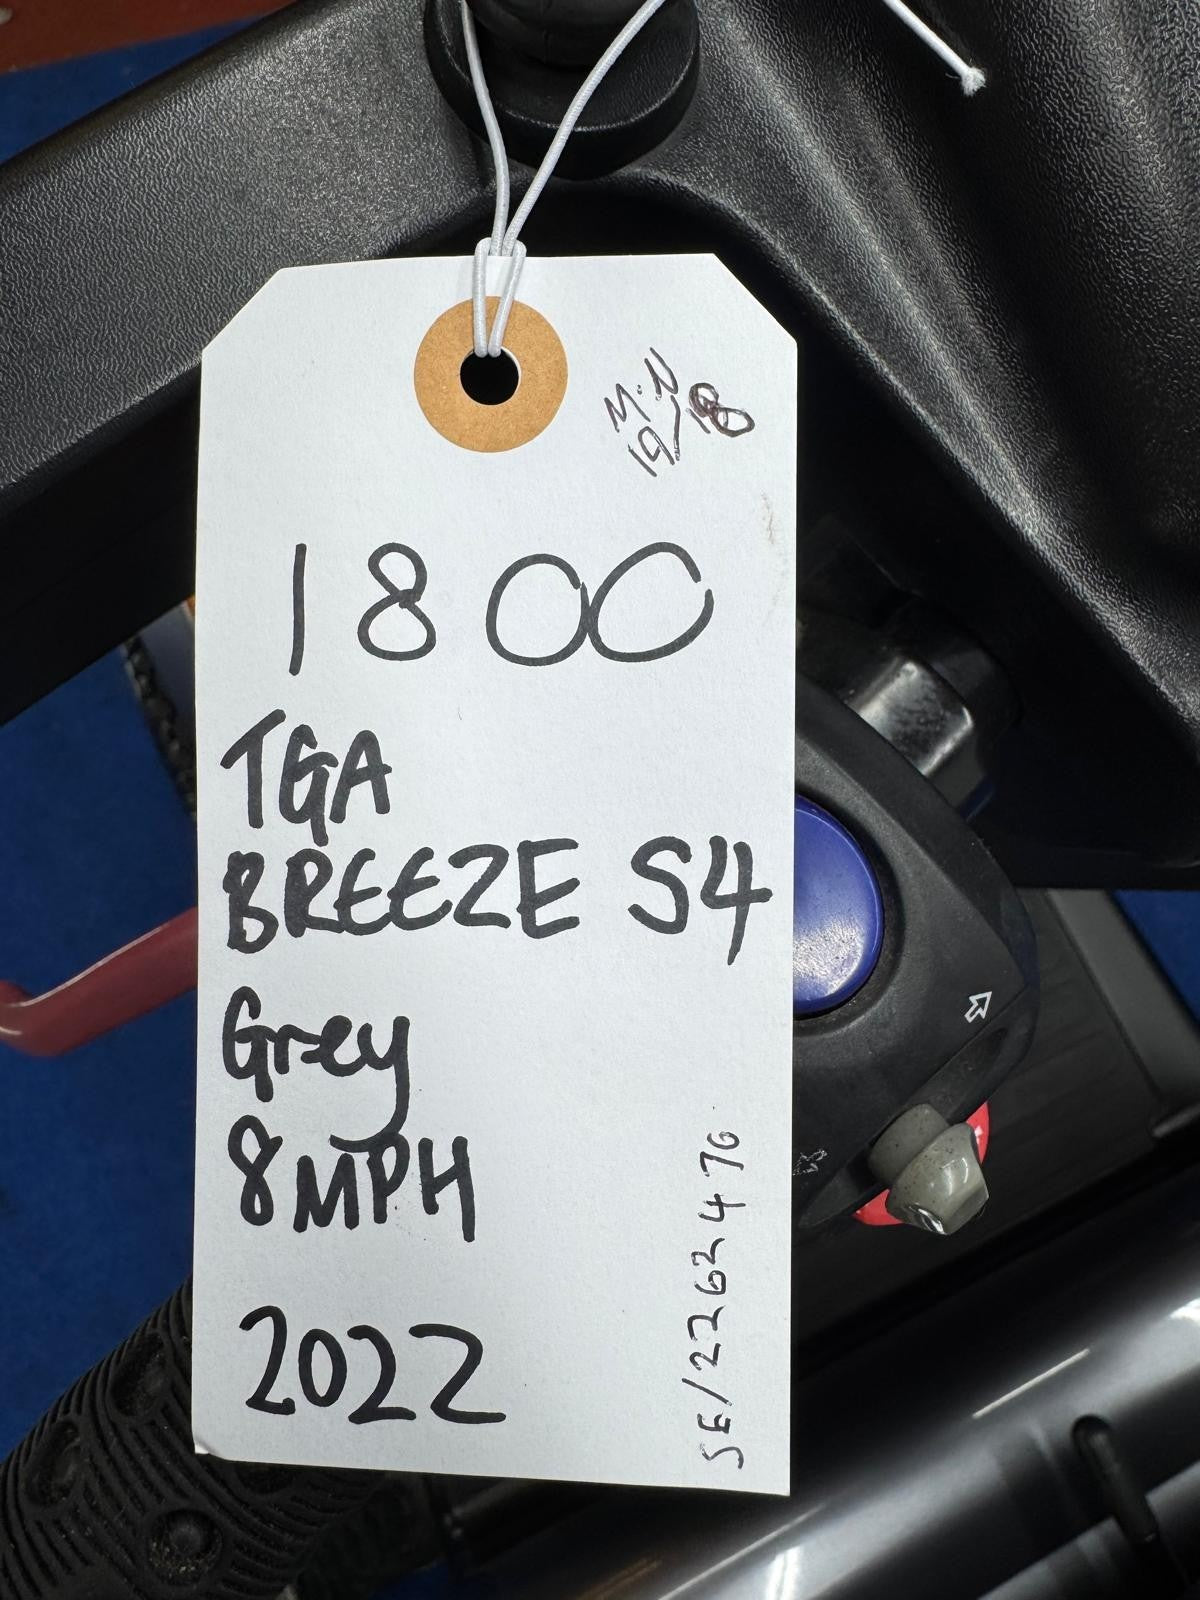 M.N
19/
18
1800
TGA
BREEZE S4
Grey
8MPH
2022
SE/2262476